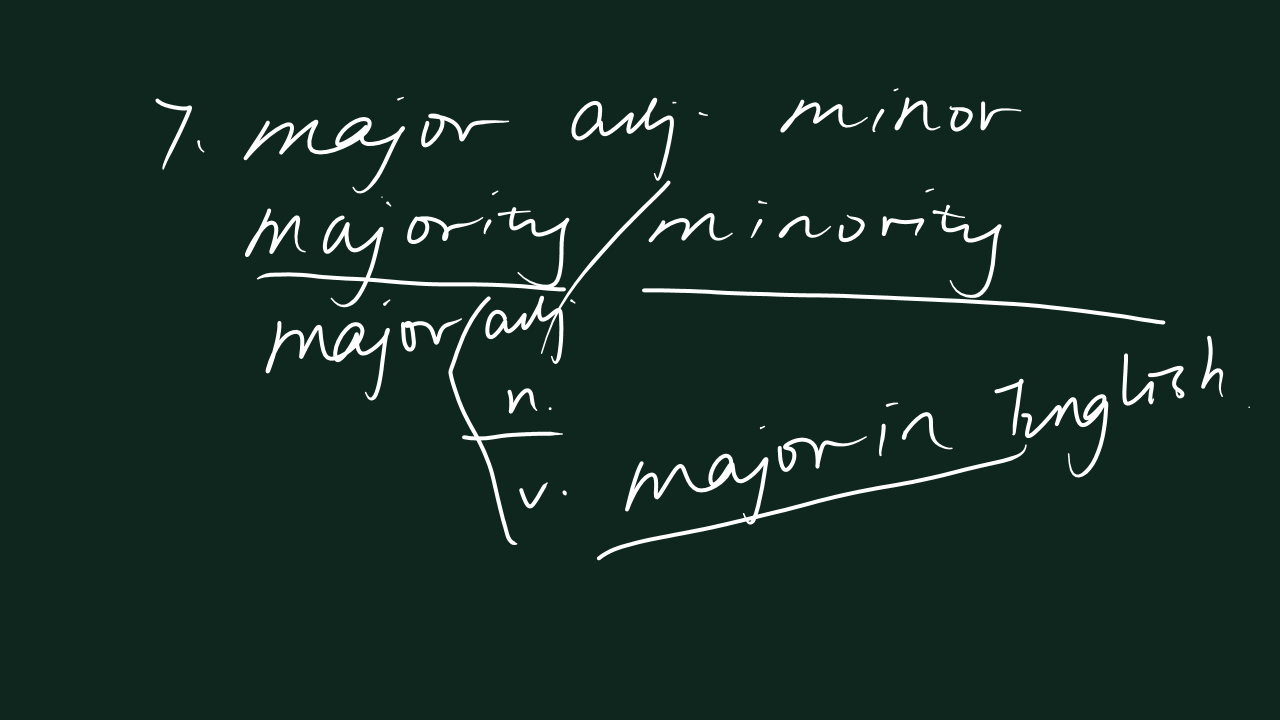 7. major adj. minor
majority / minority
major adj
n.
v. major in English